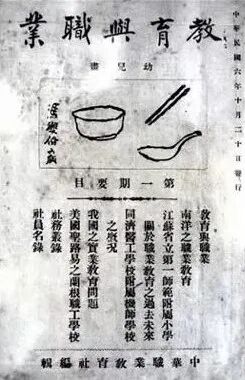 中華民國六年十月二十日發行
教育與職業
幼兒畫
第一期要目
教育與職業
南洋之職業教育
江蘇省立第一師範附屬小學
關於職業教育之過去未來
同濟醫工學校附屬機師學校
之概況
我國之實業教育問題
美國聖路易之蘭根職工學校
社務叢錄
社員名錄
中華職業教育社編輯